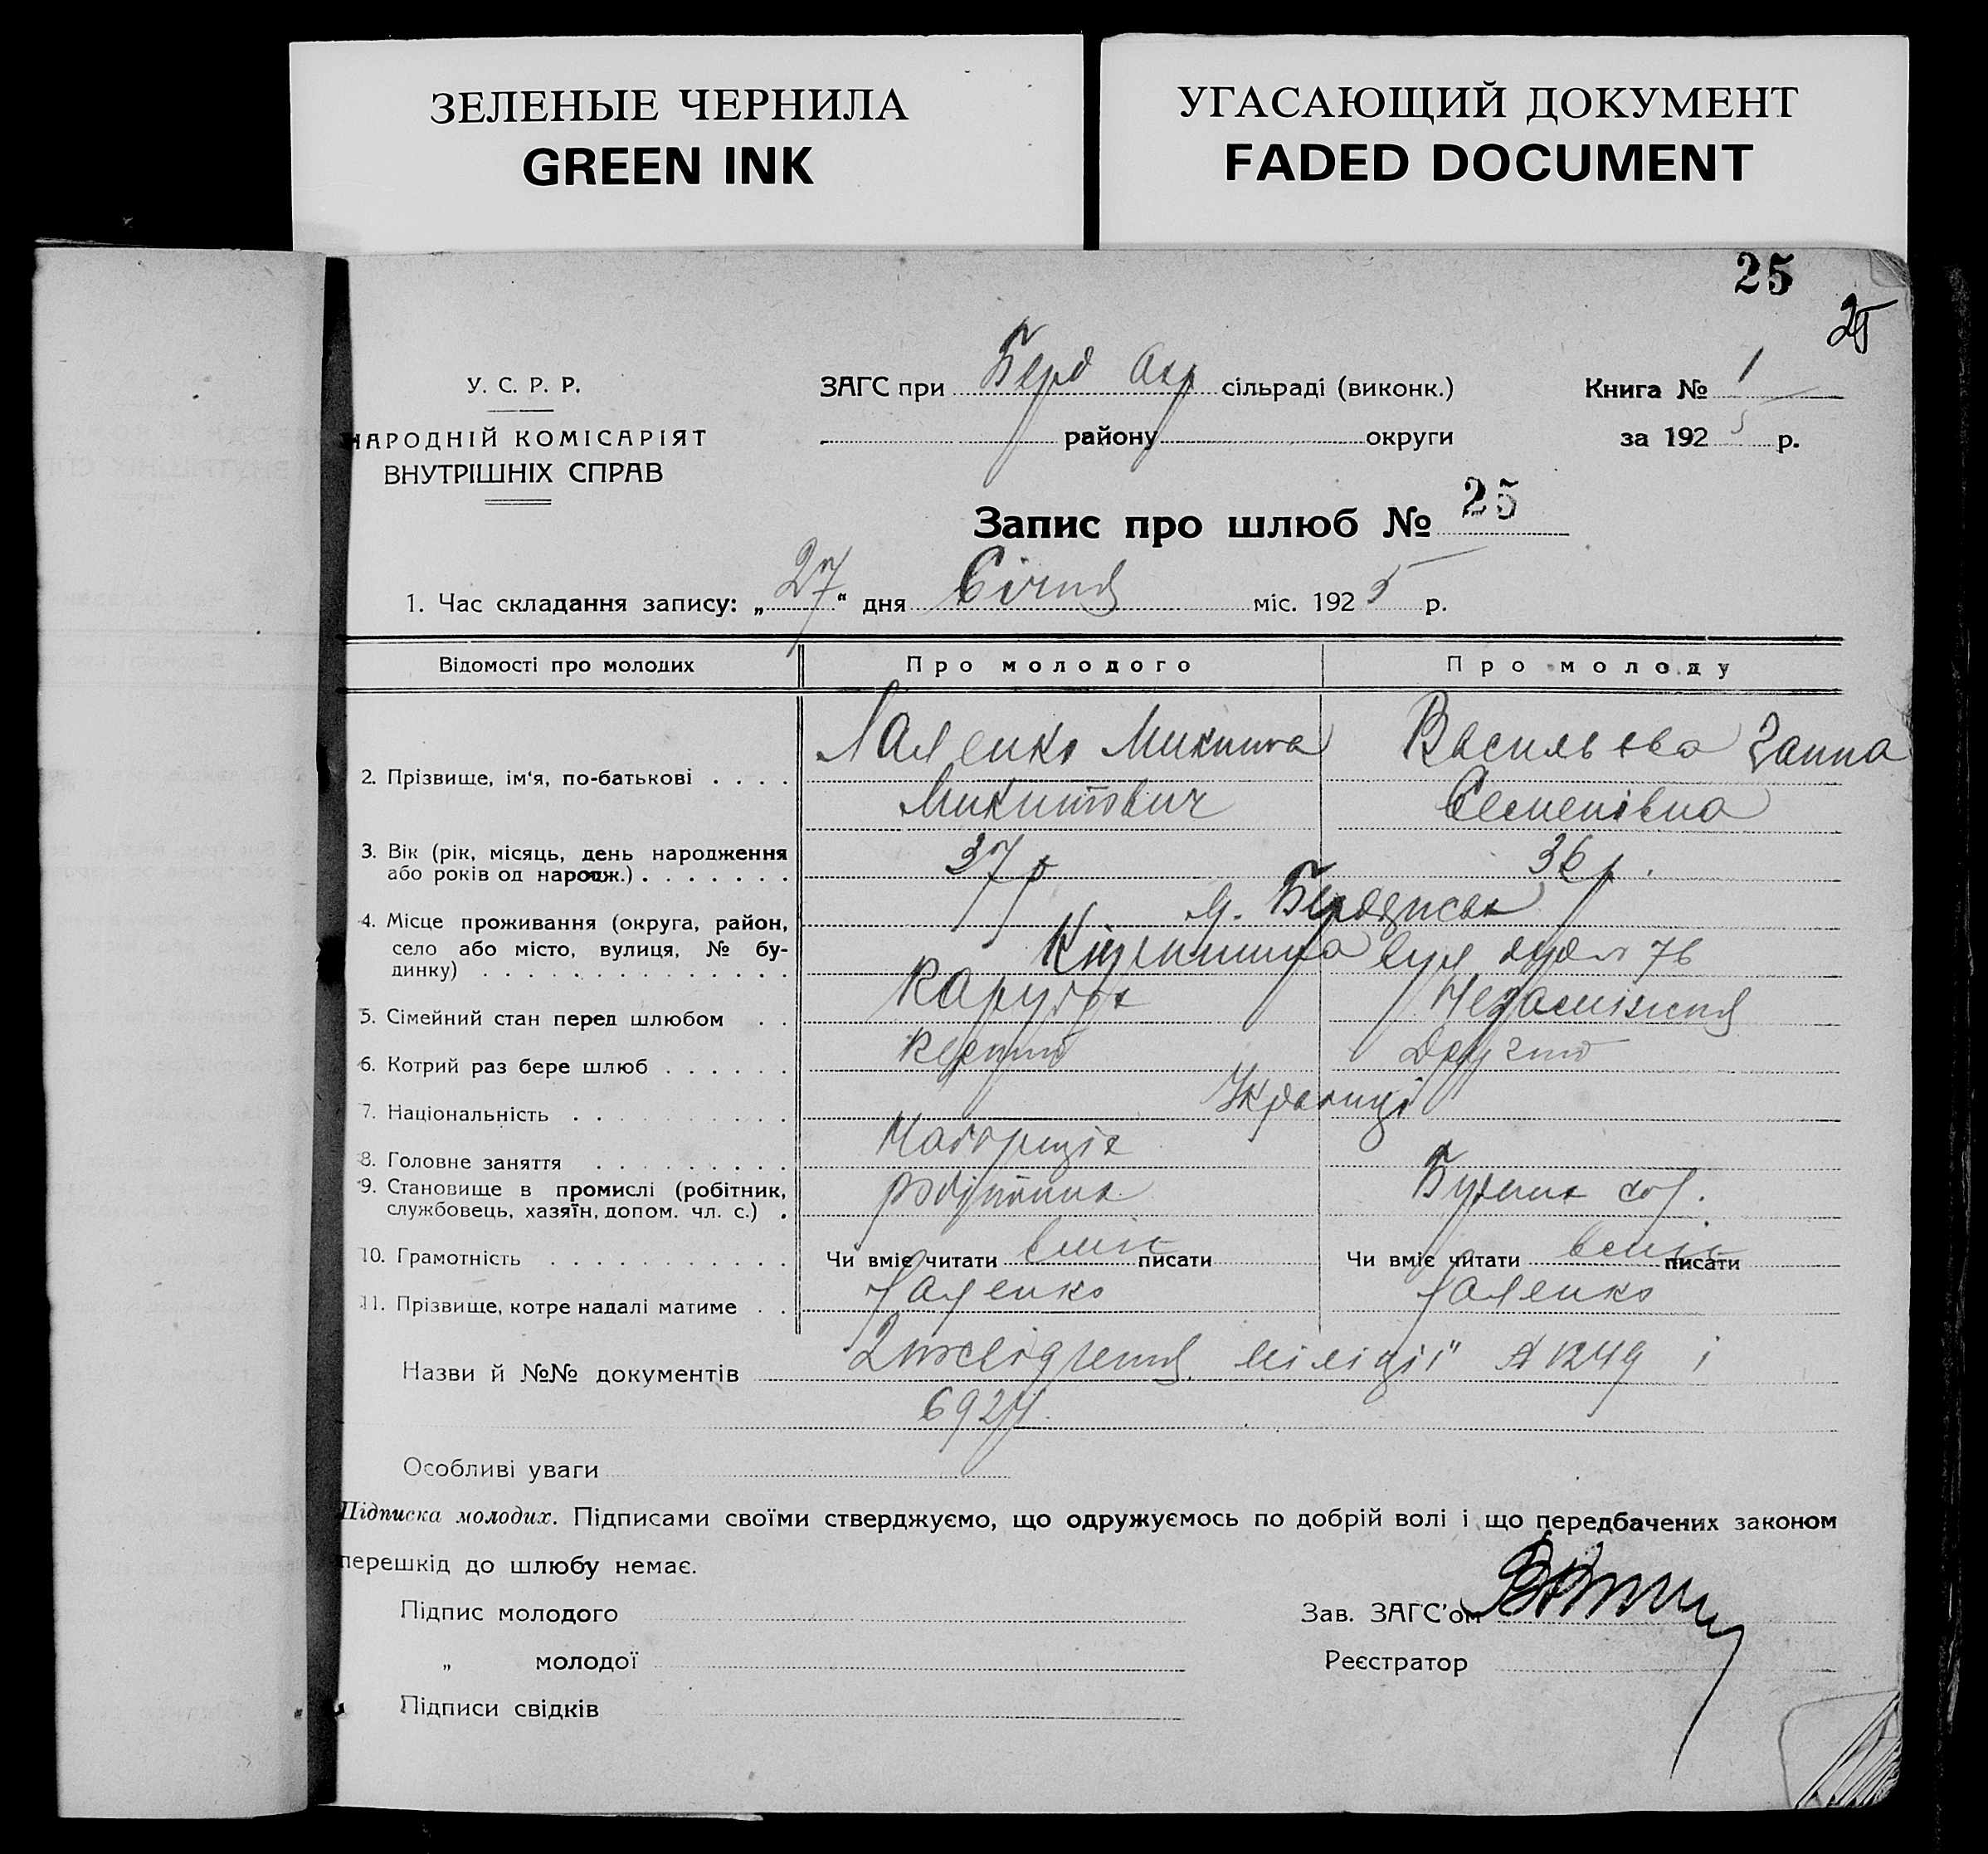 ЗЕЛЕНЫЕ ЧЕРНИЛА
GREEN INK
УГАСАЮЩИЙ ДОКУМЕНТ
FADED DOCUMENT
25
25
У. С. Р. Р.
НАРОДНІЙ КОМІСАРІЯТ
ВНУТРІШНІХ СПРАВ
ЗАГС при Берд Окр сільраді (виконк.)
району округи
Книга № 1
за 1925 р.
Запис про шлюб № 25
1. Час складання запису: „27“ дня Січня міс. 1925 р.
Відомості про молодих Про молодого Про молоду
2. Прізвище, ім‘я, по-батькові . . . . Микита Васильєва Ганна
Микитович Семенівна
3. Вік (рік, місяць, день народження
або років од народж.) . . . . . . . 37 р 36 р.
4. Місце проживання (округа, район, м. Бердянськ
село або місто, вулиця, № бу-
динку) . . . . . . . . . . . . . . вул 76
5. Сімейний стан перед шлюбом . .
6. Котрий раз бере шлюб . . . . . . Перший Другий
7. Національність . . . . . . . . . . Українці
8. Головне заняття . . . . . . . . .
9. Становище в промислі (робітник,
службовець, хазяїн, допом. чл. с.) . робітник
10. Грамотність . . . . . . . . . . . Чи вміє читати вміє писати Чи вміє читати вміє писати
11. Прізвище, котре надалі матиме . .
Назви й №№ документів Посвідчення міліції № 1249 і
6924
Особливі уваги
Підписка молодих. Підписами своїми стверджуємо, що одружуємось по добрій волі і що передбачених законом
перешкід до шлюбу немає.
Підпис молодого
„ молодої
Підписи свідків
Зав. ЗАГС’ом
Реєстратор